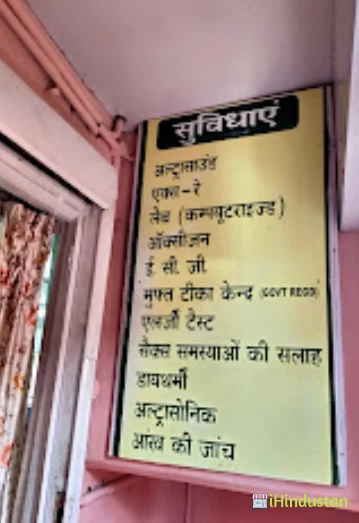 सुविधाएं
अल्ट्रासाउंड
एक्स-रे
लेब (कम्पयूटराइज्ड)
ऑक्सीजन
ई. सी. जी.
मुफ्त टीका केन्द्र (GOVT REGD)
एलर्जी टेस्ट
सैक्स समस्याओं की सलाह
डायथर्मी
अल्ट्रासोनिक
आंख की जांच
iHindustan